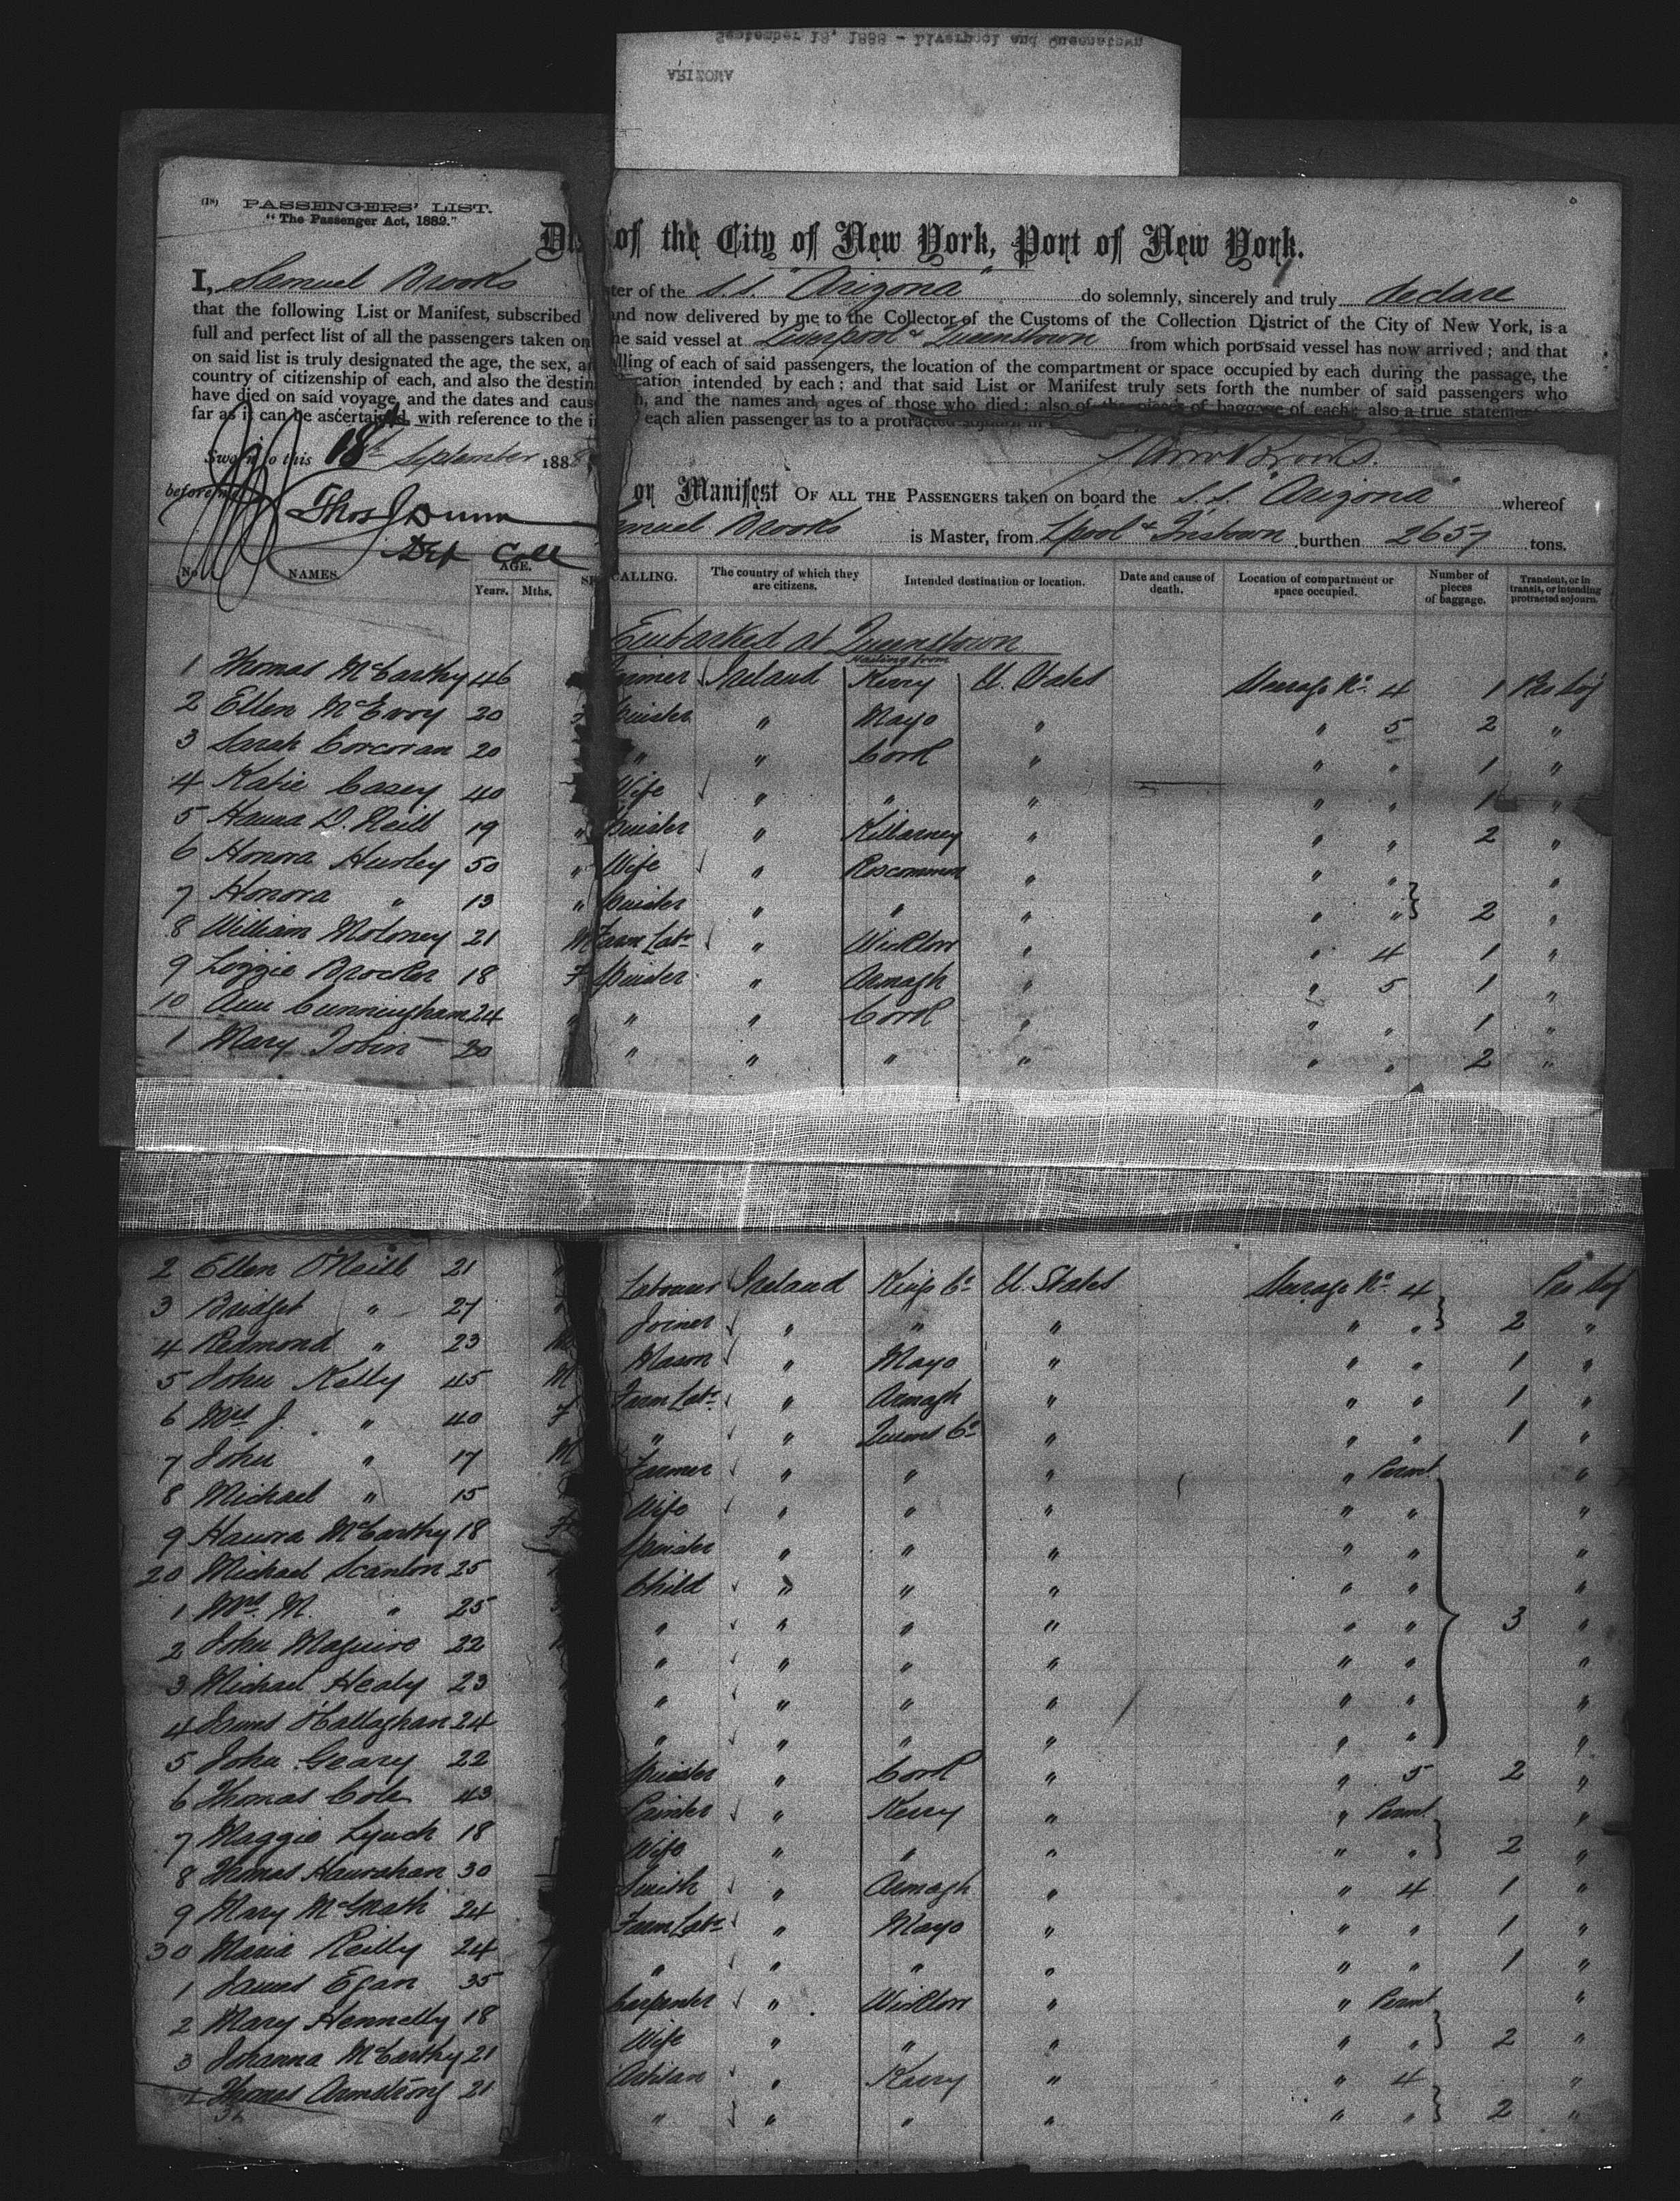 September 18, 1888 - Liverpool and Queenstown
ARIZONA
(18) PASSENGERS' LIST.
"The Passenger Act, 1882."
Dis of the City of New York, Port of New York.
I, Samuel Brooks ter of the S.S. "Arizona" do solemnly, sincerely and truly declare
that the following List or Manifest, subscribed and now delivered by me to the Collector of the Customs of the Collection District of the City of New York, is a
full and perfect list of all the passengers taken on he said vessel at Liverpool & Queenstown from which port said vessel has now arrived; and that
on said list is truly designated the age, the sex, a lling of each of said passengers, the location of the compartment or space occupied by each during the passage, the
country of citizenship of each, and also the destin cation intended by each; and that said List or Manifest truly sets forth the number of said passengers who
have died on said voyage, and the dates and caus h, and the names and ages of those who died; also of the pieces of baggage of each; also a true statemen
far as it can be ascertained, with reference to the i each alien passenger as to a protracted sojourn in
Sworn to this 18th September 1888
before me Thos J Dunn
Dep Coll
or Manifest OF ALL THE PASSENGERS taken on board the S.S. "Arizona" whereof
amuel Brooks is Master, from Lpool & Qnstown burthen 2657 tons.
No NAMES. AGE. Years. Mths. SE CALLING. The country of which they are citizens. Intended destination or location. Date and cause of death. Location of compartment or space occupied. Number of pieces of baggage. Transient, or in transit, or intending protracted sojourn.
Embarked at Queenstown
Hailing from
1 Thomas McCarthy 46 Farmer Ireland Kerry U. States Steerage No. 4 1 Pro Soj
2 Ellen McEvoy 20 Spinster " Mayo " " 5 2 "
3 Sarah Corcoran 20 " " Cork " " " 1 "
4 Katie Casey 40 Wife " " " " " 1 "
5 Hanna D. Neill 19 " Spinster " Killarney " " " 2 "
6 Honora Hurley 50 " Wife " Roscommon " " " "
7 Honora " 13 " Spinster " " " " " 2 "
8 William Moloney 21 M Farm Labr " Wicklow " " 4 1 "
9 Lizzie Brocken 18 F Spinster " Armagh " " 5 1 "
10 Ann Cunningham 24 " " " Cork " " " 1 "
1 Mary Tobin 20 " " " " " " 2 "
2 Ellen O'Neill 21 " Labourer Ireland Kings Co. U. States Steerage No. 4 Pro Soj
3 Bridget " 27 " Joiner " " " " " 2 "
4 Redmond " 23 M Mason " Mayo " " " 1 "
5 John Kelly 45 M Farm Labr " Armagh " " " 1 "
6 Mrs J. " 40 F " " Queens Co. " " " 1 "
7 John " 17 M Farmer " " " " "
8 Michael " 15 Wife " " " " " "
9 Hanora McCarthy 18 F Spinster " " " " " "
20 Michael Scanlon 25 Child " " " " " "
1 Mrs. M. " 25 " " " " " " 3 "
2 John Maguire 22 " " " " " " "
3 Michael Healy 23 " " " " " " "
4 James O'Callaghan 24 " " " " " " "
5 John Geary 22 Spinster " Cork " " 5 2 "
6 Thomas Cole 43 Painter " Kerry " " "
7 Maggie Lynch 18 Wife " " " " " 2 "
8 Thomas Hanrahan 30 Smith " Armagh " " 4 1 "
9 Mary McGrath 24 Farm Labr " Mayo " " " 1 "
30 Maria Reilly 24 " " " " " " 1 "
1 James Egan 35 Carpenter " Wicklow " " "
2 Mary Hennelly 18 Wife " " " " " 2 "
3 Johanna McCarthy 21 Artisan " Kerry " " 4 "
4 Thomas Armstrong 21 " " " " " " 2 "